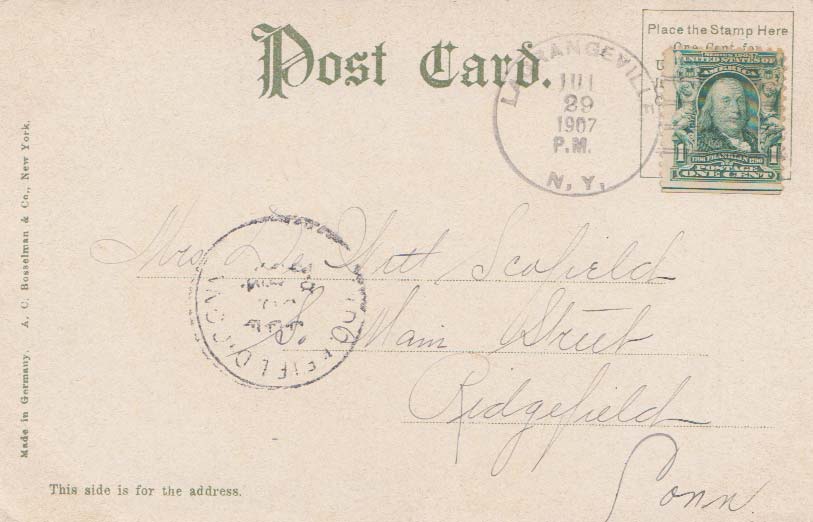 Post Card.
Place the Stamp Here
One Cent for
LAGRANGEVILLE
JUL
29
1907
P.M.
N. Y.
SERIES 1902
UNITED STATES OF
AMERICA
1 1
1706 FRANKLIN 1790
POSTAGE
ONE CENT
Mrs De Witt Scofield
S. Main Street
Ridgefield
Conn.
RIDGEFIELD, CONN.
Made in Germany. A. C. Bosselman & Co., New York.
This side is for the address.